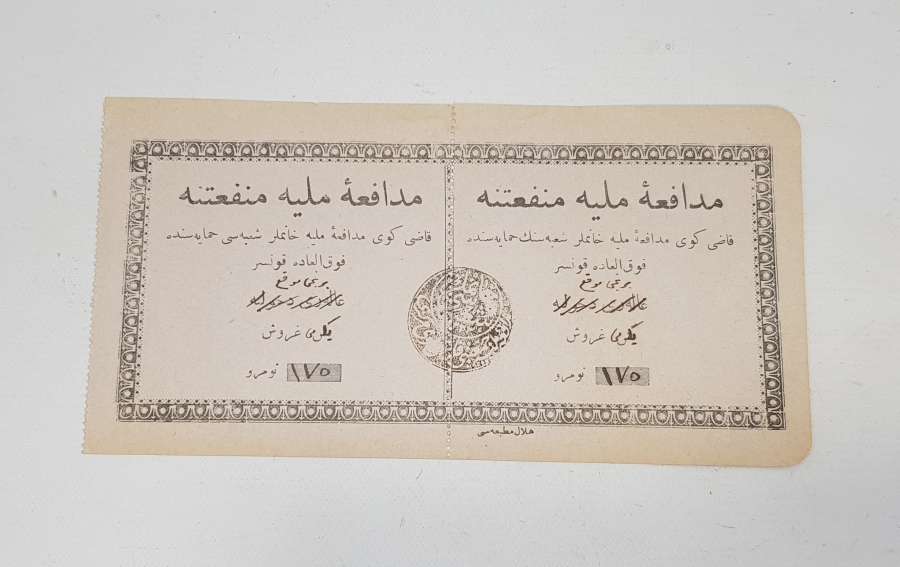 مدافعهٔ مليه منفعتنه
قاضی كوی مدافعهٔ مليه خانملر شعبه سنك حمايه سنده
فوق العاده قونسر
برنجی موقع
يكرمی غروش
نومرو ١٧٥
مدافعهٔ مليه منفعتنه
قاضی كوی مدافعهٔ مليه خانملر شعبه سی حمايه سنده
فوق العاده قونسر
برنجی موقع
يكرمی غروش
نومرو ١٧٥
هلال مطبعه سی